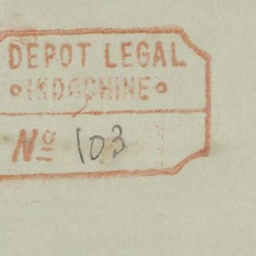 DÉPOT LEGAL
INDOCHINE
Nº 103